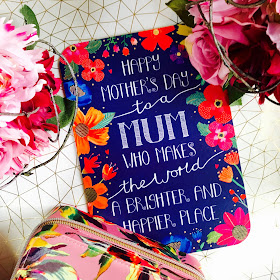 HAPPY
MOTHER'S DAY
to a
MUM
WHO MAKES
the world
A BRIGHTER AND
HAPPIER PLACE